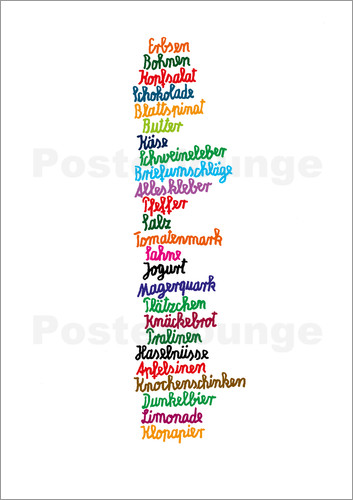 Erbsen
Bohnen
Kopfsalat
Schokolade
Blattspinat
Butter
Käse
Schweineleber
Briefumschläge
Alleskleber
Pfeffer
Salz
Tomatenmark
Sahne
Jogurt
Magerquark
Plätzchen
Knäckebrot
Pralinen
Haselnüsse
Apfelsinen
Knochenschinken
Dunkelbier
Limonade
Klopapier
Posterlounge
Posterlounge